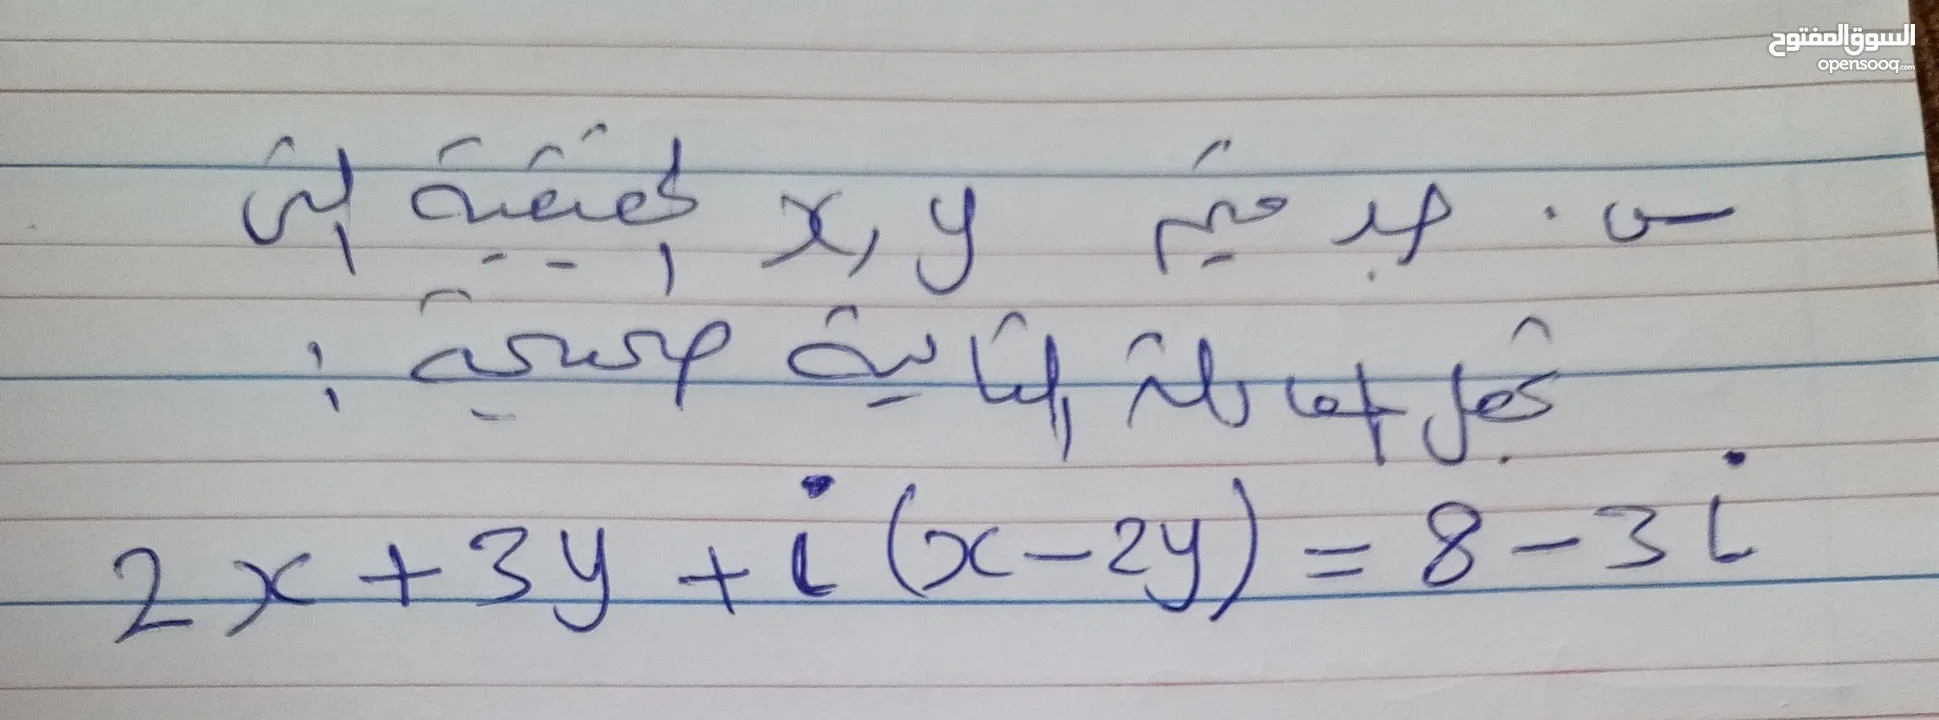 السوق المفتوح
opensooq.com
س. جد قيم x, y الحقيقية التي
تجعل المعادلة التالية صحيحة :
2x + 3y + i (x - 2y) = 8 - 3i